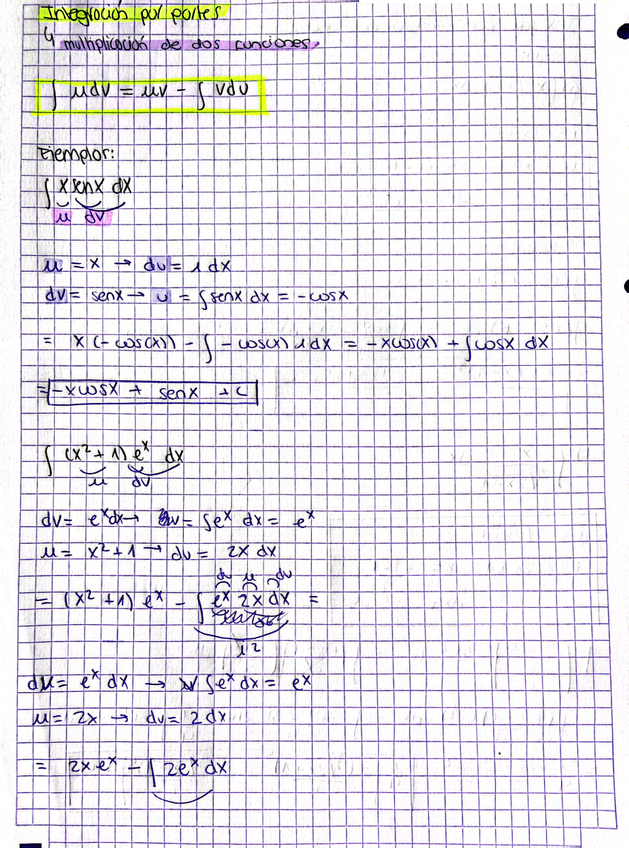 Integración por partes
↳ multiplicación de dos funciones.
∫ udv = uv - ∫ vdu
Ejemplos:
∫ x senx dx
u dv
u = x → du = 1 dx
dv = senx → v = ∫ senx dx = -cosx
= x (-cos(x)) - ∫ -cos(x) 1 dx = -xcos(x) + ∫ cosx dx
= -xcosx + senx + c
∫ (x² + 1) eˣ dx
u dv
dv = eˣdx → v = ∫ eˣ dx = eˣ
u = x² + 1 → du = 2x dx
dv u dv
= (x² + 1) eˣ - ∫ eˣ 2x dx =
I2
dv = eˣ dx → v ∫ eˣ dx = eˣ
u = 2x → du = 2 dx
= 2x eˣ - ∫ 2eˣ dx